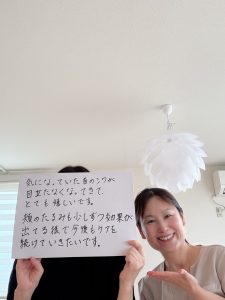 気になっていた首のシワが
目立たなくなってきて
とても嬉しいです。
頬のたるみも少しずつ効果が
出てる様で今後もケアを
続けていきたいです。